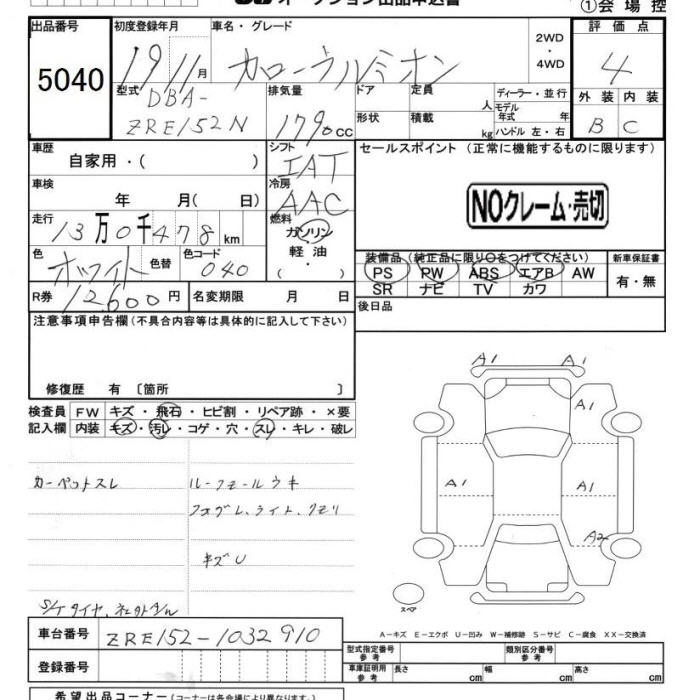 オークション出品申込書
①会場控
出品番号
5040
初度登録年月
19 11月
車名・グレード
カローラルミオン
2WD
・
4WD
評価点
4
外装 内装
B C
型式
DBA-
ZRE152N
排気量
1790cc
ドア
定員
人
ディーラー・並行
モデル年式 年
形状
積載
kg
ハンドル 左・右
車歴
自家用・( )
シフト
IAT
セールスポイント (正常に機能するものに限ります)
NOクレーム・売切
車検
年 月( 日)
冷房
AAC
走行
13万0千478km
燃料
ガソリン
軽油
( ・ )
色
ホワイト
色替
色コード
040
装備品 (純正品に限り○をつけてください)
PS PW ABS エアB AW
SR ナビ TV カワ
新車保証書
有・無
R券
12600円
名変期限 月 日
後日品
注意事項申告欄(不具合内容等は具体的に記入して下さい)
修復歴 有 〔箇所 〕
検査員記入欄
FW キズ・飛石・ヒビ割・リペア跡・×要
内装 キズ・汚レ・コゲ・穴・スレ・キレ・破レ
カーペットスレ
ルーフモールウキ
フォグレ、ライト、クモリ
キズU
A1 A1
A1
A1 A1
A2
スペア
A-キズ E-エクボ U-凹み W-補修跡 S-サビ C-腐食 XX-交換済
車台番号
ZRE152-1032910
登録番号
型式指定番号
参考
類別区分番号
参考
車庫証明用
参考
長さ cm 幅 cm 高さ cm
希望出品コーナー(コーナーは各会場により異なります)